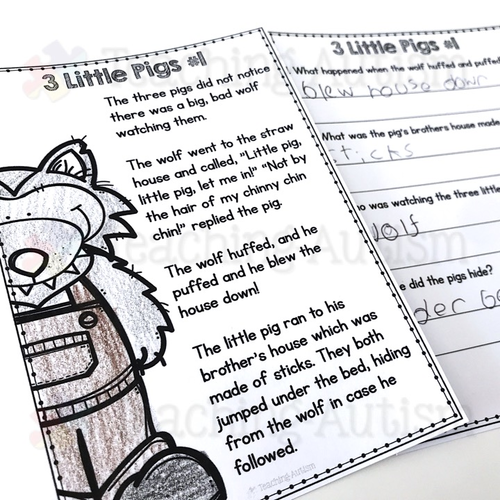 3 Little Pigs #1
The three pigs did not notice
there was a big, bad wolf
watching them.
The wolf went to the straw
house and called, "Little pig,
little pig, let me in!" "Not by
the hair of my chinny chin
chin!" replied the pig.
The wolf huffed, and he
puffed and he blew the
house down!
The little pig ran to his
brother's house which was
made of sticks. They both
jumped under the bed, hiding
from the wolf in case he
followed.
© Teaching Autism
3 Little Pigs #1
What happened when the wolf huffed and puffed
blew house down
What was the pig's brothers house made
ticks
was watching the three littl
olf
did the pigs hide?
der be
Teaching Autism
Teaching Autism
Teaching Autism